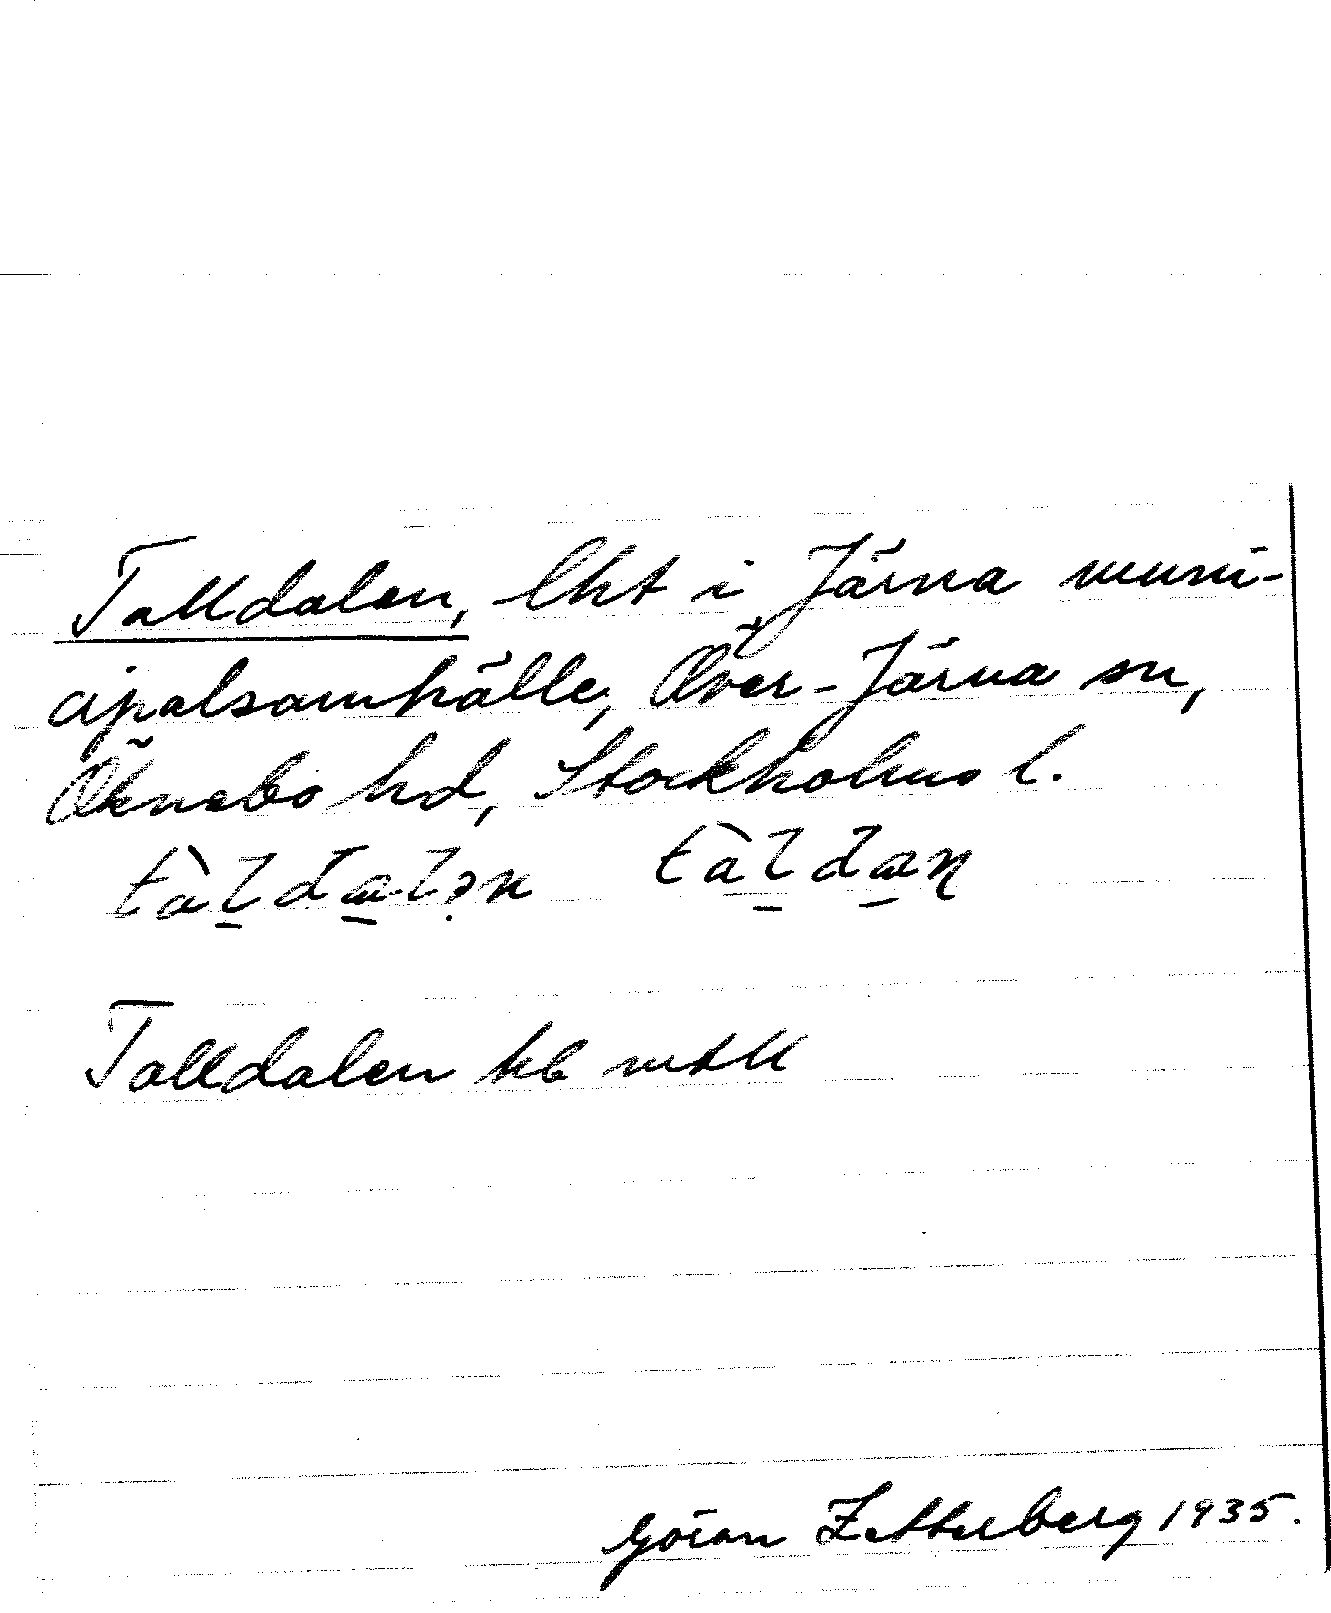 Talldalen, lht i Järna muni-
cipalsamhälle, Över-Järna sn,
Öknebo hd, Stockholms l.
tàl̲da̲lən tàl̲da̲n
Talldalen kb
Göran Zetterberg 1935.